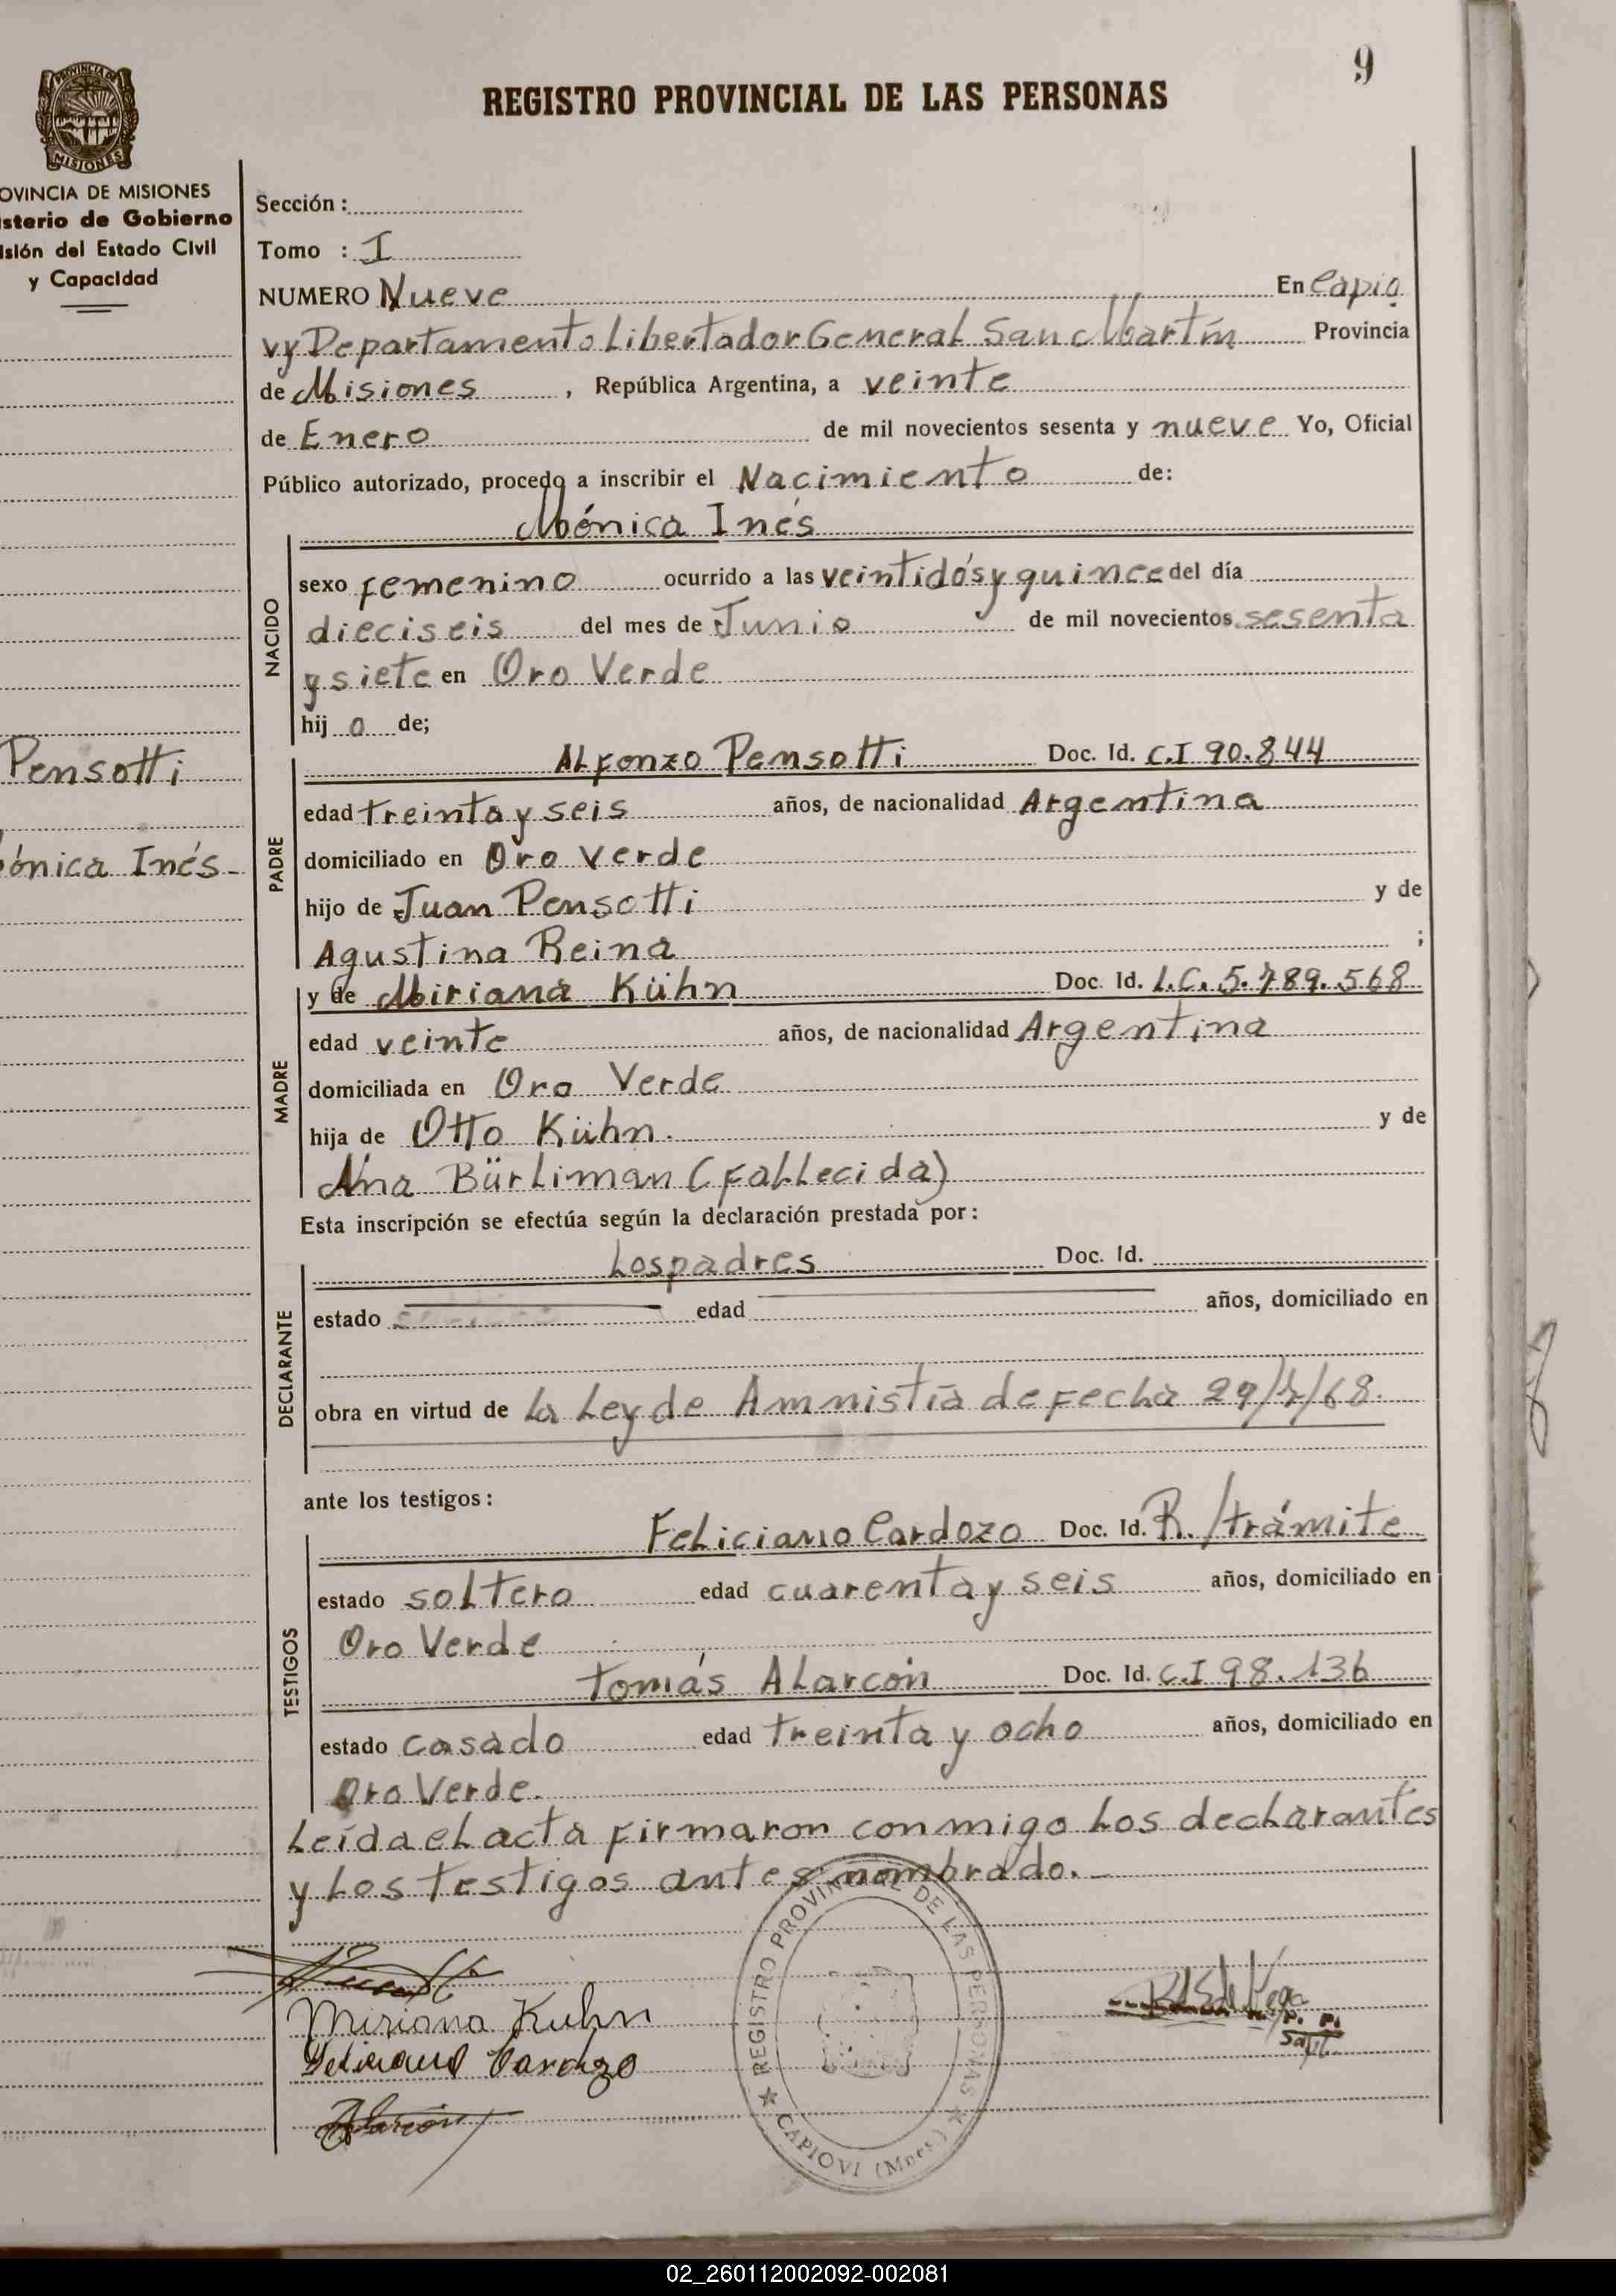 9
REGISTRO PROVINCIAL DE LAS PERSONAS
PROVINCIA DE
MISIONES
OVINCIA DE MISIONES
isterio de Gobierno
isión del Estado Civil
y Capacidad
Sección :
Tomo : I
NUMERO Nueve En Capio
vy Departamento Libertador General San Martín Provincia
de Misiones , República Argentina, a veinte
de Enero de mil novecientos sesenta y nueve Yo, Oficial
Público autorizado, procedo a inscribir el Nacimiento de:
Mónica Inés
NACIDO
sexo femenino ocurrido a las veintidós y quince del día
dieciseis del mes de Junio de mil novecientos sesenta
y siete en Oro Verde
hij o de;
Pensotti
ónica Inés-
PADRE
Alfonzo Pensotti Doc. Id. C.I 90.844
edad treinta y seis años, de nacionalidad Argentina
domiciliado en Oro Verde
hijo de Juan Pensotti y de
Agustina Reina ;
MADRE
y de Miriana Kühn Doc. Id. L.C. 5.789.568
edad veinte años, de nacionalidad Argentina
domiciliada en Oro Verde
hija de Otto Kühn. y de
Ana Bürliman (fallecida)
Esta inscripción se efectúa según la declaración prestada por:
DECLARANTE
Los padres Doc. Id.
estado edad años, domiciliado en
obra en virtud de la Ley de Amnistía de fecha 29/7/68.
ante los testigos:
TESTIGOS
Feliciano Cardozo Doc. Id. R./trámite
estado soltero edad cuarenta y seis años, domiciliado en
Oro Verde
Tomás Alarcón Doc. Id. C.I 98.136
estado casado edad treinta y ocho años, domiciliado en
Oro Verde.
Leída el acta firmaron conmigo los declarantes
y los testigos antes nombrado.-
Miriana Kuhn
Feliciano Cardozo
Alarcón
REGISTRO PROVINCIAL DE LAS PERSONAS
CAPIOVI (Mnes.)
02_260112002092-002081